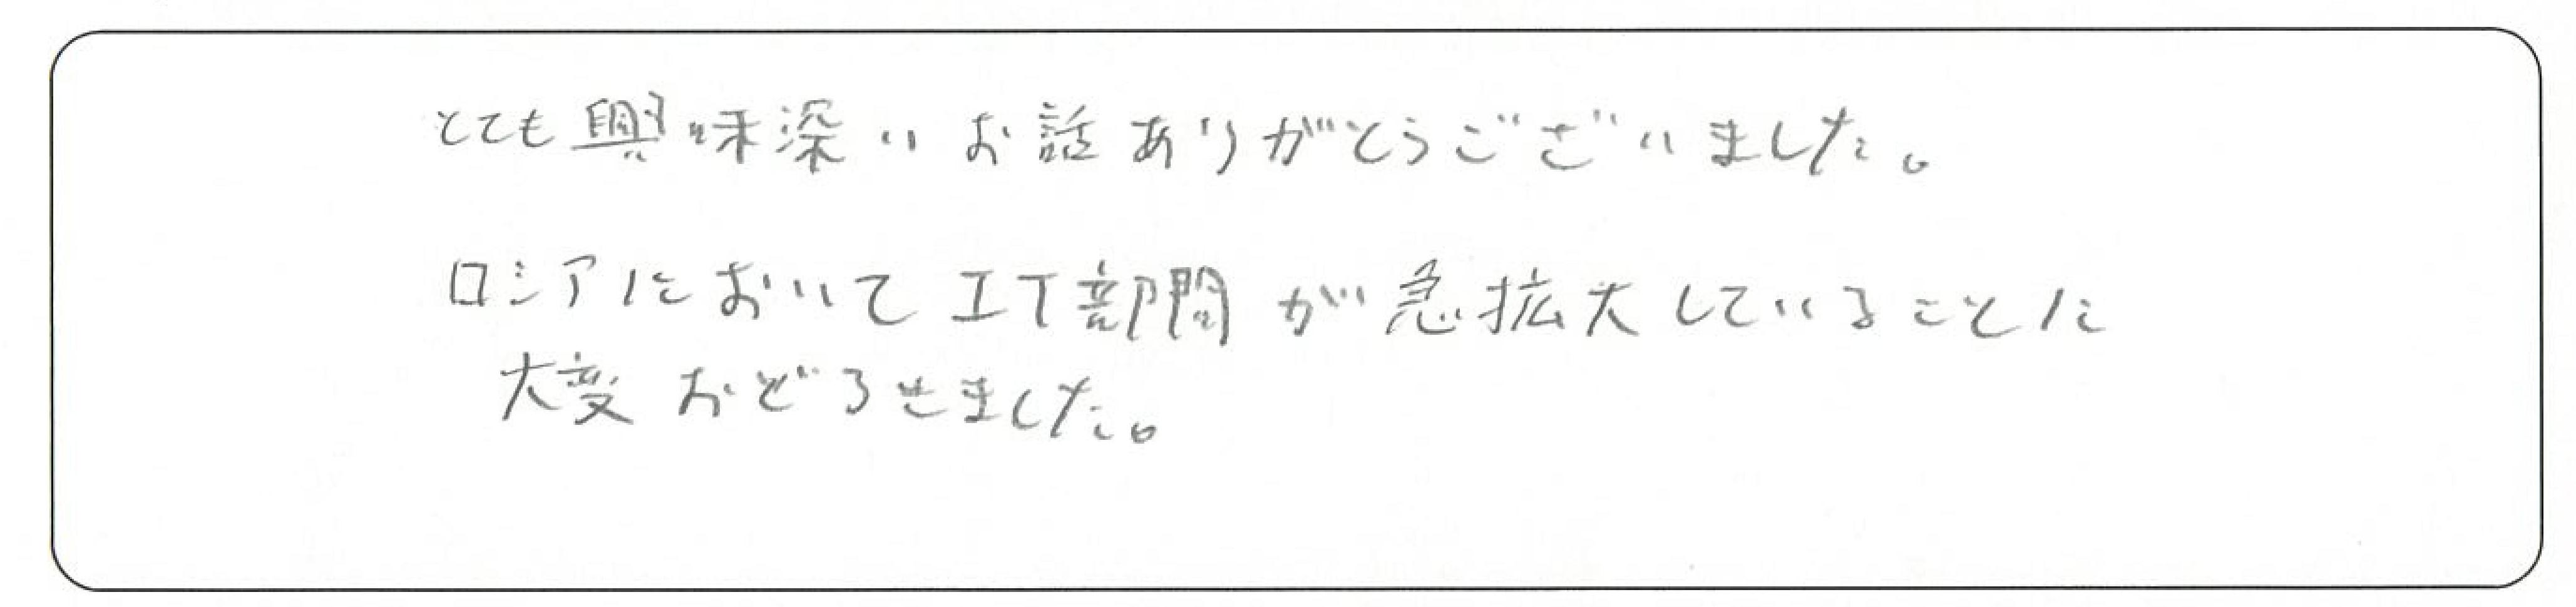 とても興味深いお話ありがとうございました。
ロシアにおいてIT部門が急拡大していることに
大変おどろきました。